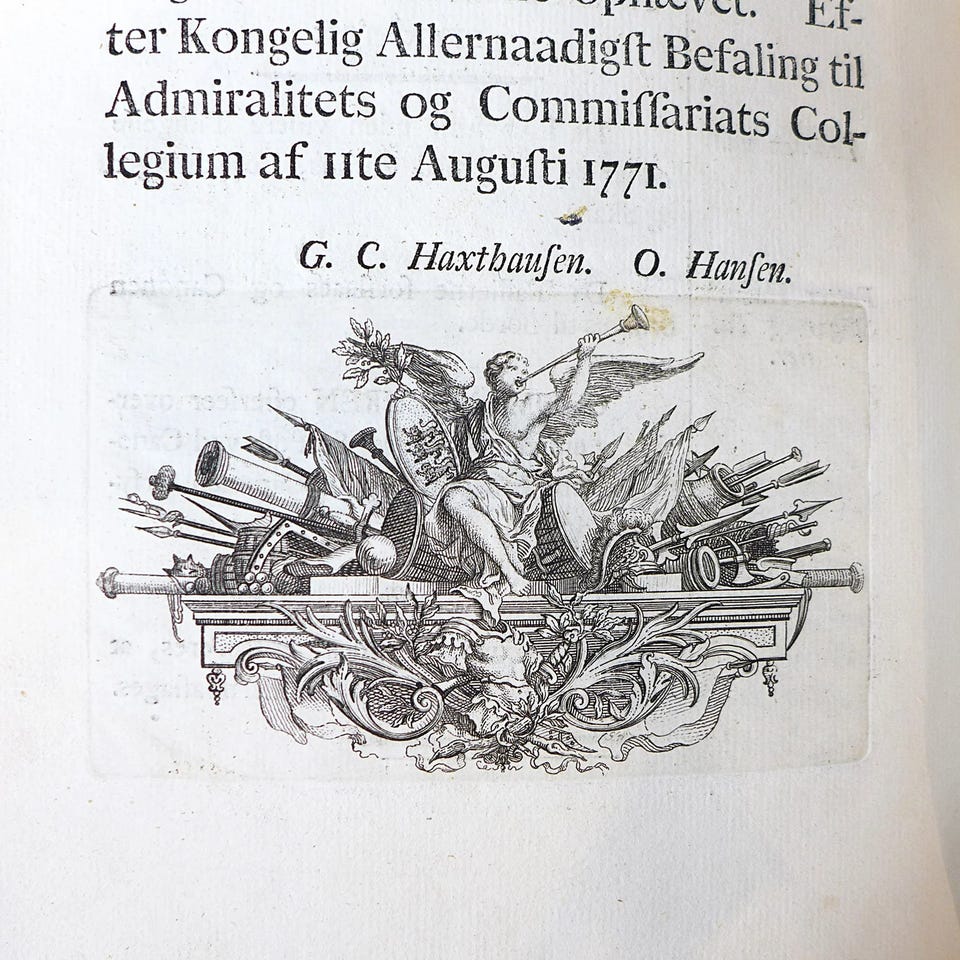 ophævet. Ef-
ter Kongelig Allernaadigſt Befaling til
Admiralitets og Commiſſariats Col-
legium af 11te Auguſti 1771.
G. C. Haxthauſen. O. Hanſen.